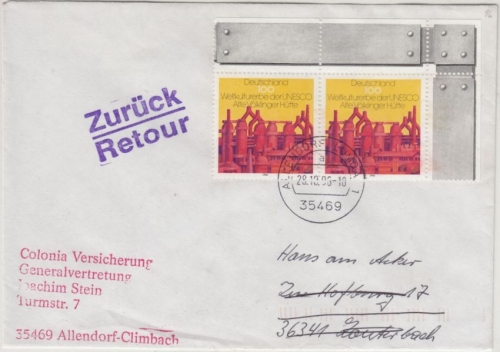 Deutschland
100
Weltkulturerbe der UNESCO
Alte Völklinger Hütte
Deutschland
100
Weltkulturerbe der UNESCO
Alte Völklinger Hütte
Zurück
Retour
28.10.96-10
35469
Colonia Versicherung
Generalvertretung
Joachim Stein
Turmstr. 7
35469 Allendorf-Climbach
Hans am Acker
Zum Hofburg 17
36341 Lauterbach